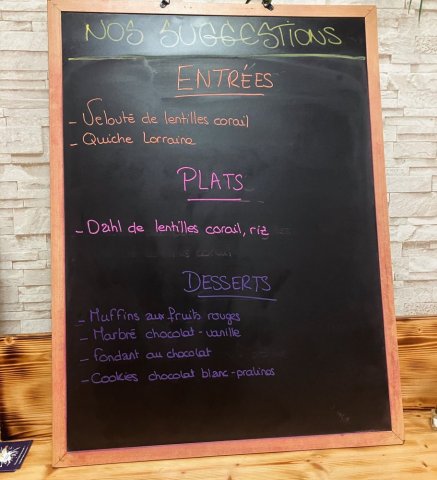 NOS SUGGESTIONS
ENTRÉES
- Velouté de lentilles corail
- Quiche Lorraine
PLATS
- Dahl de lentilles corail, riz
DESSERTS
- Muffins aux fruits rouges
- Marbré chocolat-vanille
- Fondant au chocolat
- Cookies chocolat blanc-pralinos